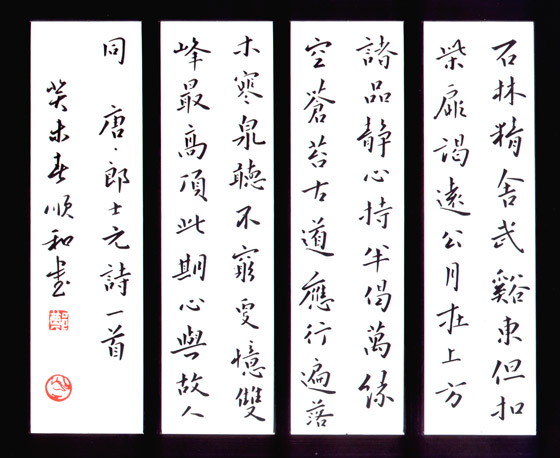 石林精舍武谿東但扣
柴扉謁遠公月在上方
諸品靜心持半偈萬緣
空蒼苔古道應行遍落
木寒泉聽不窮更憶雙
峰最高頂此期心與故人
同 唐·郎士元詩一首
癸未春順和書
鄭